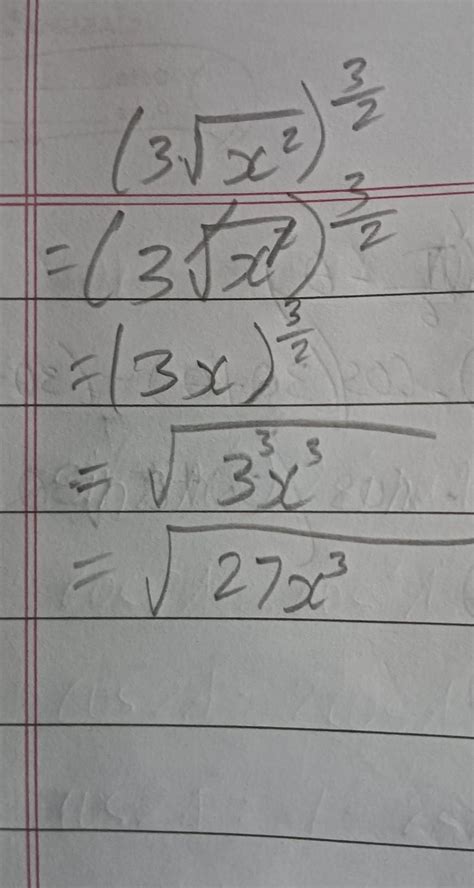 (3√x²)^(3/2)
= (3√x²)^(3/2)
= (3x)^(3/2)
= √3³x³
= √27x³